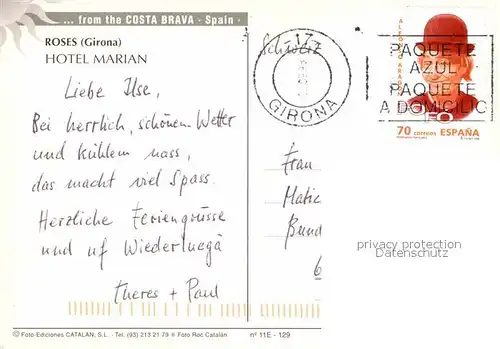 ... from the COSTA BRAVA - Spain -
ROSES (Girona)
HOTEL MARIAN
Liebe Ilse,
Bei herrlich, schönem Wetter
und kühlem nass,
das macht viel Spass.
Herzliche Feriengrüsse
und uf Wiederluegä
Theres + Paul
© Foto-Ediciones CATALÁN, S.L. - Tel. (93) 213 21 79 * Foto Roc Catalán
nº 11E - 129
Schweiz
17
GIRONA
PAQUETE
AZUL
PAQUETE
A DOMICILIO
70 correos ESPAÑA
Frau
Matic
Bund
6
privacy protection
Datenschutz